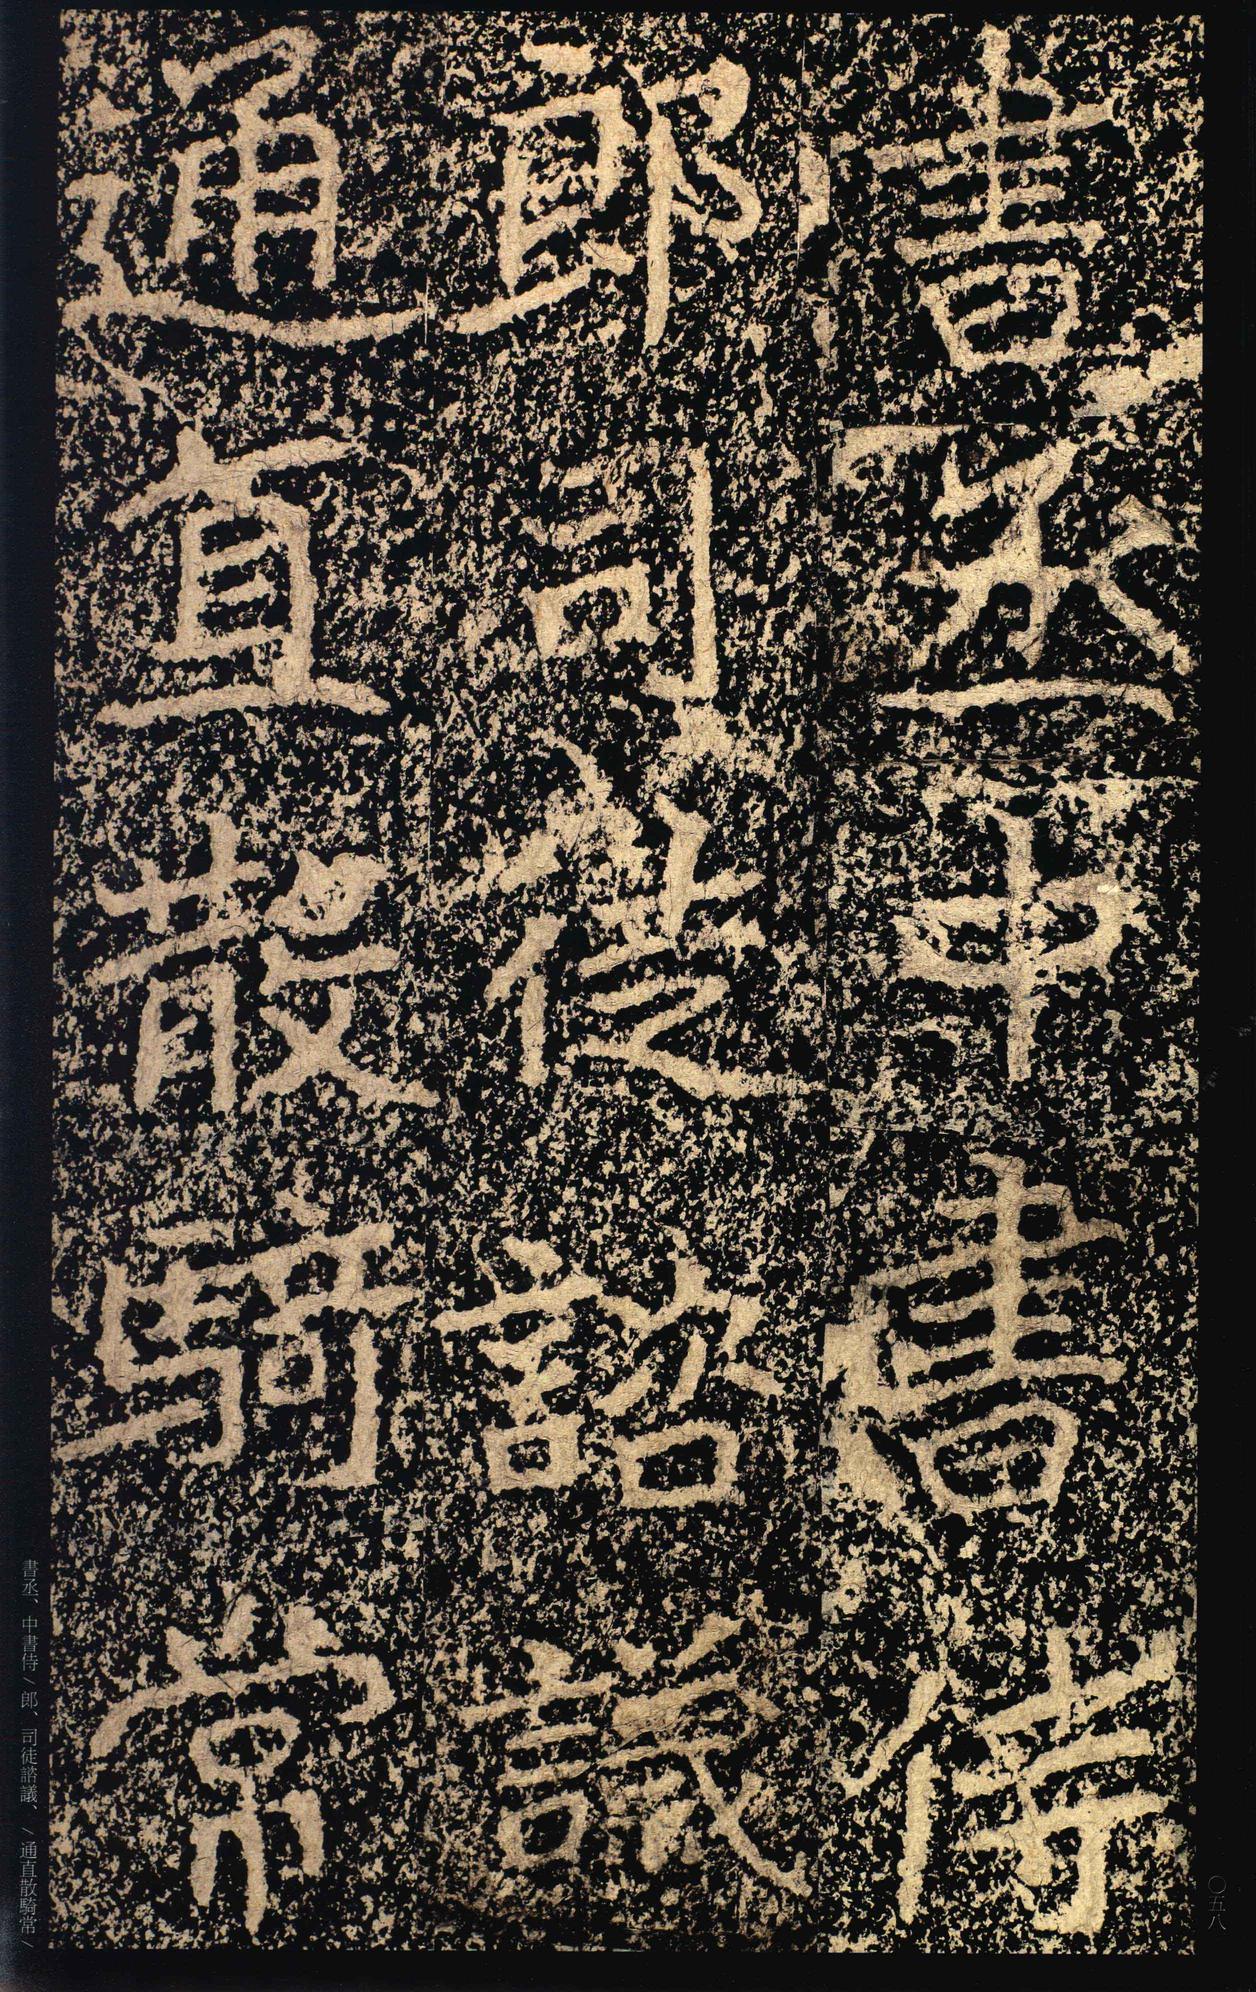 書丞中書侍
郎司徒諮議
通直散騎常
書丞、中書侍／郎、司徒諮議、／通直散騎常／
〇五八